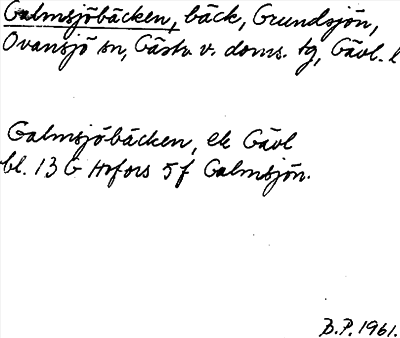 Galmsjöbäcken, bäck, Grundsjön,
Ovansjö sn, Gästr. v. doms. tg, Gävl. l
Galmsjöbäcken, ek Gävl
bl. 13 G Hofors 5f Galmsjön.
B.P. 1961.